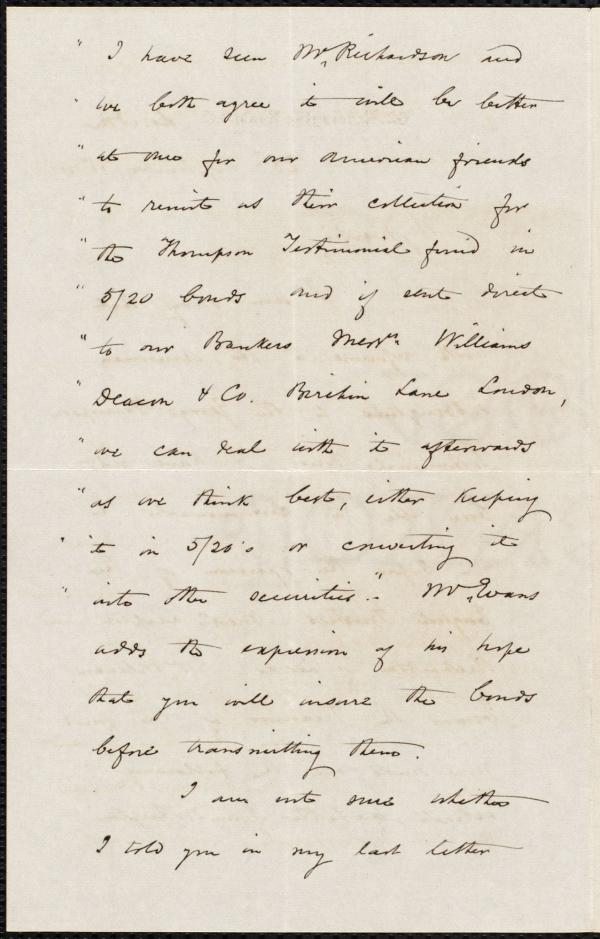 " I have seen Mr. Richardson and
" we both agree it will be better
" at one for our American friends
" to remit us their collection for
" the Thompson Testimonial fund in
" 5/20 bonds and if sent direct
" to our Bankers Messrs. Williams
" Deacon & Co. Birchin Lane London,
" we can deal with it afterwards
" as we think best, either keeping
" it in 5/20's or converting it
" into other securities." Mr. Evans
adds the expression of his hope
that you will insure the bonds
before transmitting them.
I am not sure whether
I told you in my last letter